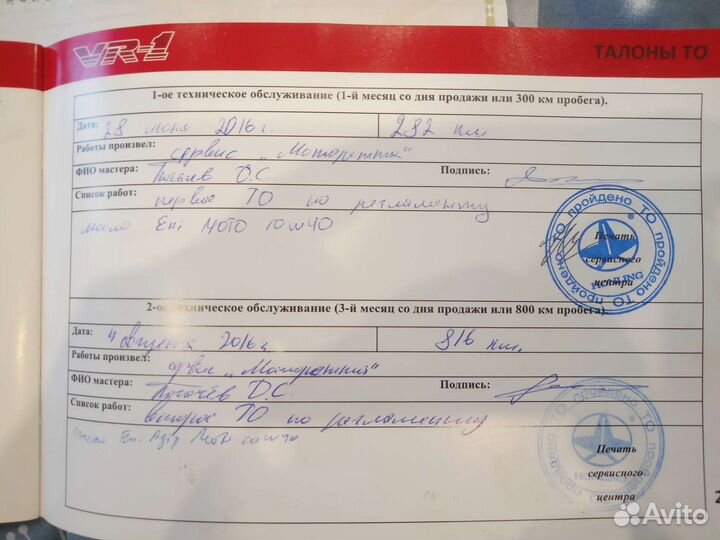 VR-1
ТАЛОНЫ ТО
1-ое техническое обслуживание (1-й месяц со дня продажи или 300 км пробега).
Дата: 28 июня 2016 г. 282 км.
Работы произвел: сервис „Моторетта"
ФИО мастера: О.С. Подпись:
Список работ: первое ТО по регламенту
масло Eni МОТО 10w40
пройдено ТО пройдено ТО пройдено ТО
HOWLING
Печать
сервисного
центра
2-ое техническое обслуживание (3-й месяц со дня продажи или 800 км пробега).
Дата: Августа 2016 г. 816 км.
Работы произвел: „Моторетта"
ФИО мастера: О.С. Подпись:
Список работ: второе ТО по регламенту
масло Eni 10w40
пройдено ТО пройдено ТО
Печать
сервисного
центра
Avito